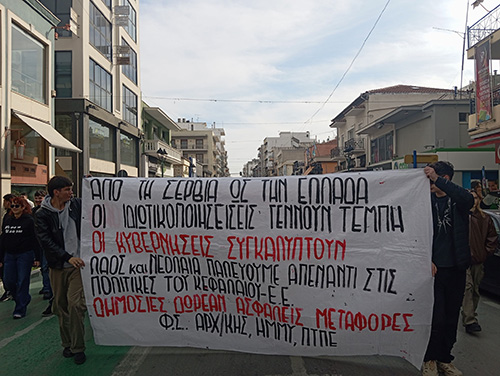 ΑΠΟ ΤΗ ΣΕΡΒΙΑ ΩΣ ΤΗΝ ΕΛΛΑΔΑ
ΟΙ ΙΔΙΩΤΙΚΟΠΟΙΗΣΕΙΣΕΙΣ ΓΕΝΝΟΥΝ ΤΕΜΠΗ
ΟΙ ΚΥΒΕΡΝΗΣΕΙΣ ΣΥΓΚΑΛΥΠΤΟΥΝ
ΛΑΟΣ και ΝΕΟΛΑΙΑ ΠΑΛΕΥΟΥΜΕ ΑΠΕΝΑΝΤΙ ΣΤΙΣ
ΠΟΛΙΤΙΚΕΣ ΤΟΥ ΚΕΦΑΛΑΙΟΥ-Ε.Ε.
ΔΗΜΟΣΙΕΣ ΔΩΡΕΑΝ ΑΣΦΑΛΕΙΣ ΜΕΤΑΦΟΡΕΣ
ΦΣ. ΑΡΧ/ΚΗΣ, ΗΜΜΥ, ΠΤΠΕ